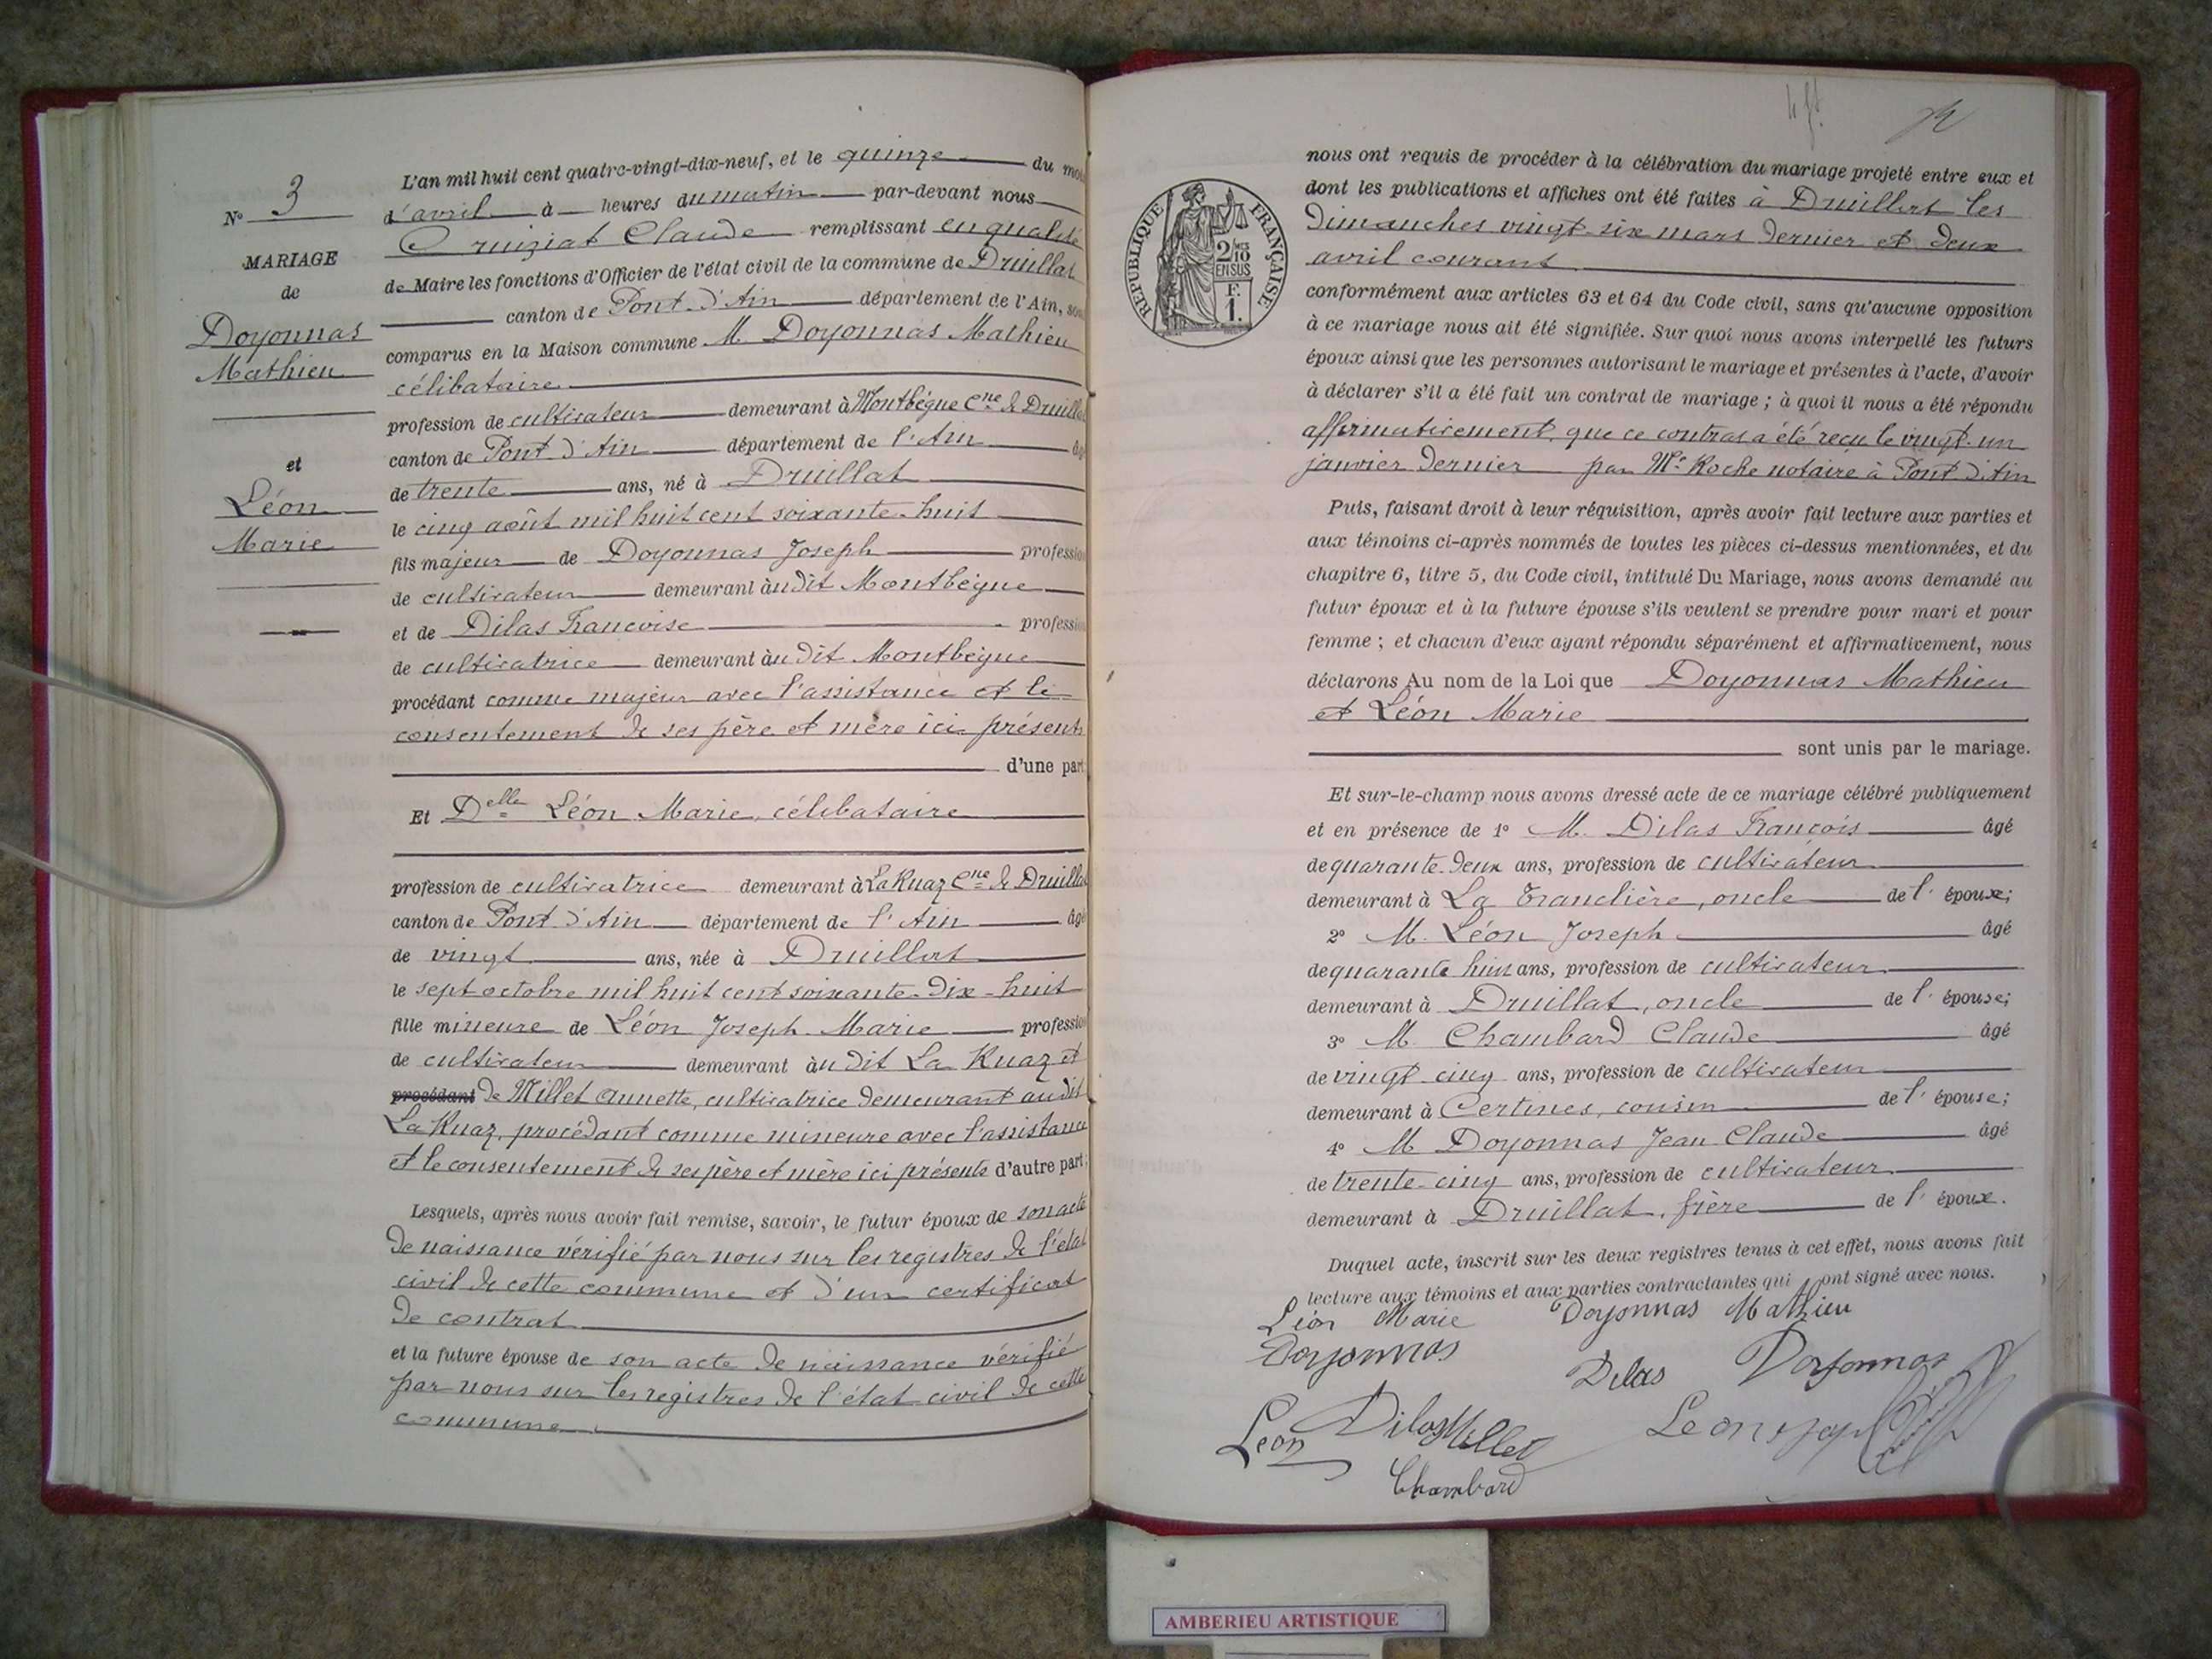 N° 3
MARIAGE
de
Doyonnas
Mathieu
et
Léon
Marie
L'an mil huit cent quatre-vingt-dix-neuf, et le quinze du mois
d'avril à heures du matin par-devant nous
Cruiziat Claude remplissant en qualité
de Maire les fonctions d'Officier de l'état civil de la commune de Druillat
canton de Pont d'Ain département de l'Ain, sont
comparus en la Maison commune M. Doyonnas Mathieu
célibataire
profession de cultivateur demeurant à Montbègue Cne de Druillat
canton de Pont d'Ain département de l'Ain âgé
de trente ans, né à Druillat
le cinq août mil huit cent soixante-huit
fils majeur de Doyonnas Joseph profession
de cultivateur demeurant àu dit Montbègue
et de Dilas Françoise profession
de cultivatrice demeurant àu dit Montbègue
procédant comme majeur avec l'assistance et le
consentement de ses père et mère ici présents
d'une part
Et Delle Léon Marie, célibataire
profession de cultivatrice demeurant à La Ruaz Cne de Druillat
canton de Pont d'Ain département de l'Ain âgé
de vingt ans, née à Druillat
le sept octobre mil huit cent soixante-dix-huit
fille mineure de Léon Joseph Marie profession
de cultivateur demeurant àu dit La Ruaz et
procédant de Millet Annette, cultivatrice demeurant au dit
La Ruaz, procédant comme mineure avec l'assistance
et le consentement de ses père et mère ici présents d'autre part;
Lesquels, après nous avoir fait remise, savoir, le futur époux de son acte
de naissance vérifié par nous sur les registres de l'état
civil de cette commune et d'un certificat
de contrat
et la future épouse de son acte de naissance vérifié
par nous sur les registres de l'état civil de cette
commune
RÉPUBLIQUE FRANÇAISE
2/10 EN SUS
F. 1.
nous ont requis de procéder à la célébration du mariage projeté entre eux et
dont les publications et affiches ont été faites à Druillat les
dimanches vingt-six mars dernier et deux
avril courant
conformément aux articles 63 et 64 du Code civil, sans qu'aucune opposition
à ce mariage nous ait été signifiée. Sur quoi nous avons interpellé les futurs
époux ainsi que les personnes autorisant le mariage et présentes à l'acte, d'avoir
à déclarer s'il a été fait un contrat de mariage; à quoi il nous a été répondu
affirmativement, que ce contrat a été reçu le vingt-un
janvier dernier par Me Roche notaire à Pont d'Ain
Puis, faisant droit à leur réquisition, après avoir fait lecture aux parties et
aux témoins ci-après nommés de toutes les pièces ci-dessus mentionnées, et du
chapitre 6, titre 5, du Code civil, intitulé Du Mariage, nous avons demandé au
futur époux et à la future épouse s'ils veulent se prendre pour mari et pour
femme; et chacun d'eux ayant répondu séparément et affirmativement, nous
déclarons Au nom de la Loi que Doyonnas Mathieu
et Léon Marie
sont unis par le mariage.
Et sur-le-champ nous avons dressé acte de ce mariage célébré publiquement
et en présence de 1° M. Dilas François âgé
de quarante-deux ans, profession de cultivateur
demeurant à La Tranclière, oncle de l'époux;
2° M. Léon Joseph âgé
de quarante huit ans, profession de cultivateur
demeurant à Druillat, oncle de l'épouse;
3° M. Chambard Claude âgé
de vingt-cinq ans, profession de cultivateur
demeurant à Certines, cousin de l'épouse;
4° M Doyonnas Jean Claude âgé
de trente-cinq ans, profession de cultivateur
demeurant à Druillat, frère de l'époux.
Duquel acte, inscrit sur les deux registres tenus à cet effet, nous avons fait
lecture aux témoins et aux parties contractantes qui ont signé avec nous.
Léon Marie Doyonnas Mathieu
Doyonnas Dilas Doyonnas
Léon Dilas Millet Leon Joseph
Chambard
AMBERIEU ARTISTIQUE